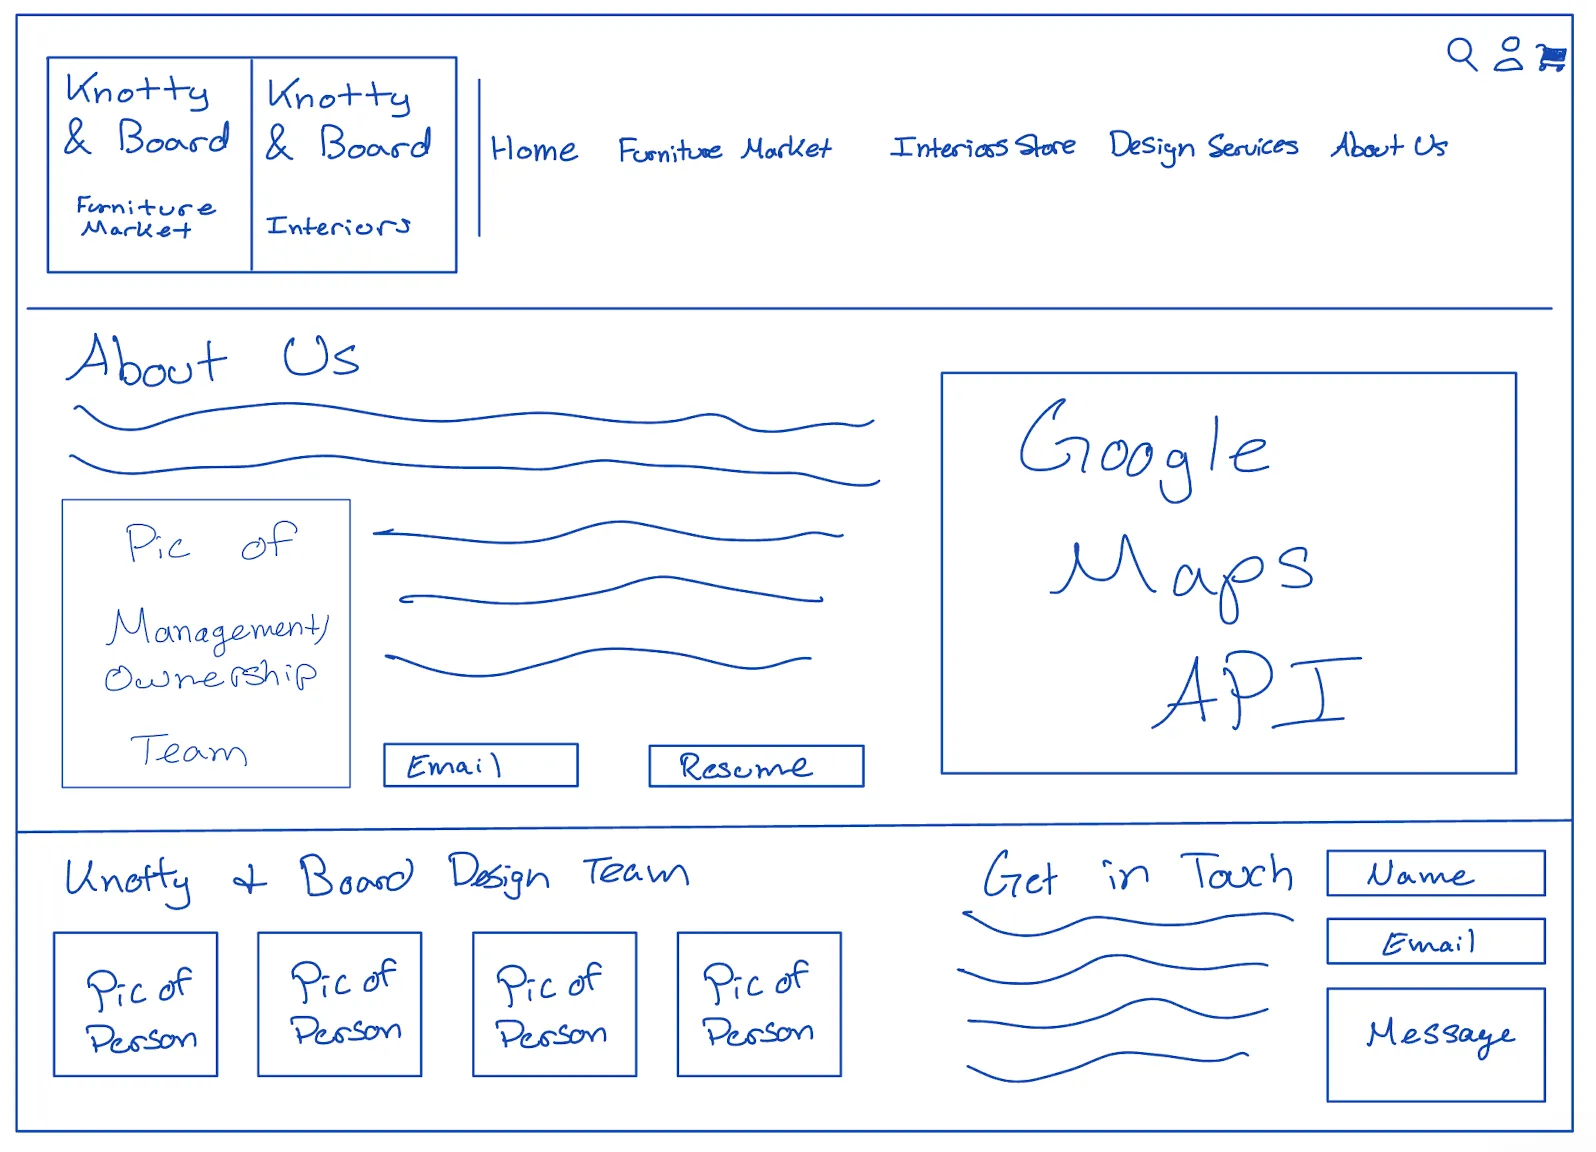 Knotty
& Board
Furniture
Market
Knotty
& Board
Interiors
Home Furniture Market Interiors Store Design Services About Us
About Us
Pic of
Management/
Ownership
Team
Email
Resume
Google
Maps
API
Knotty & Board Design Team
Pic of
Person
Pic of
Person
Pic of
Person
Pic of
Person
Get in Touch
Name
Email
Message